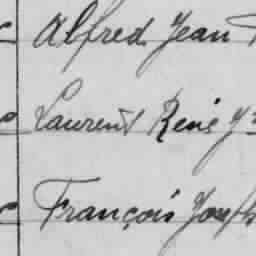 Alfred Jean
Laurent René
François Joseph